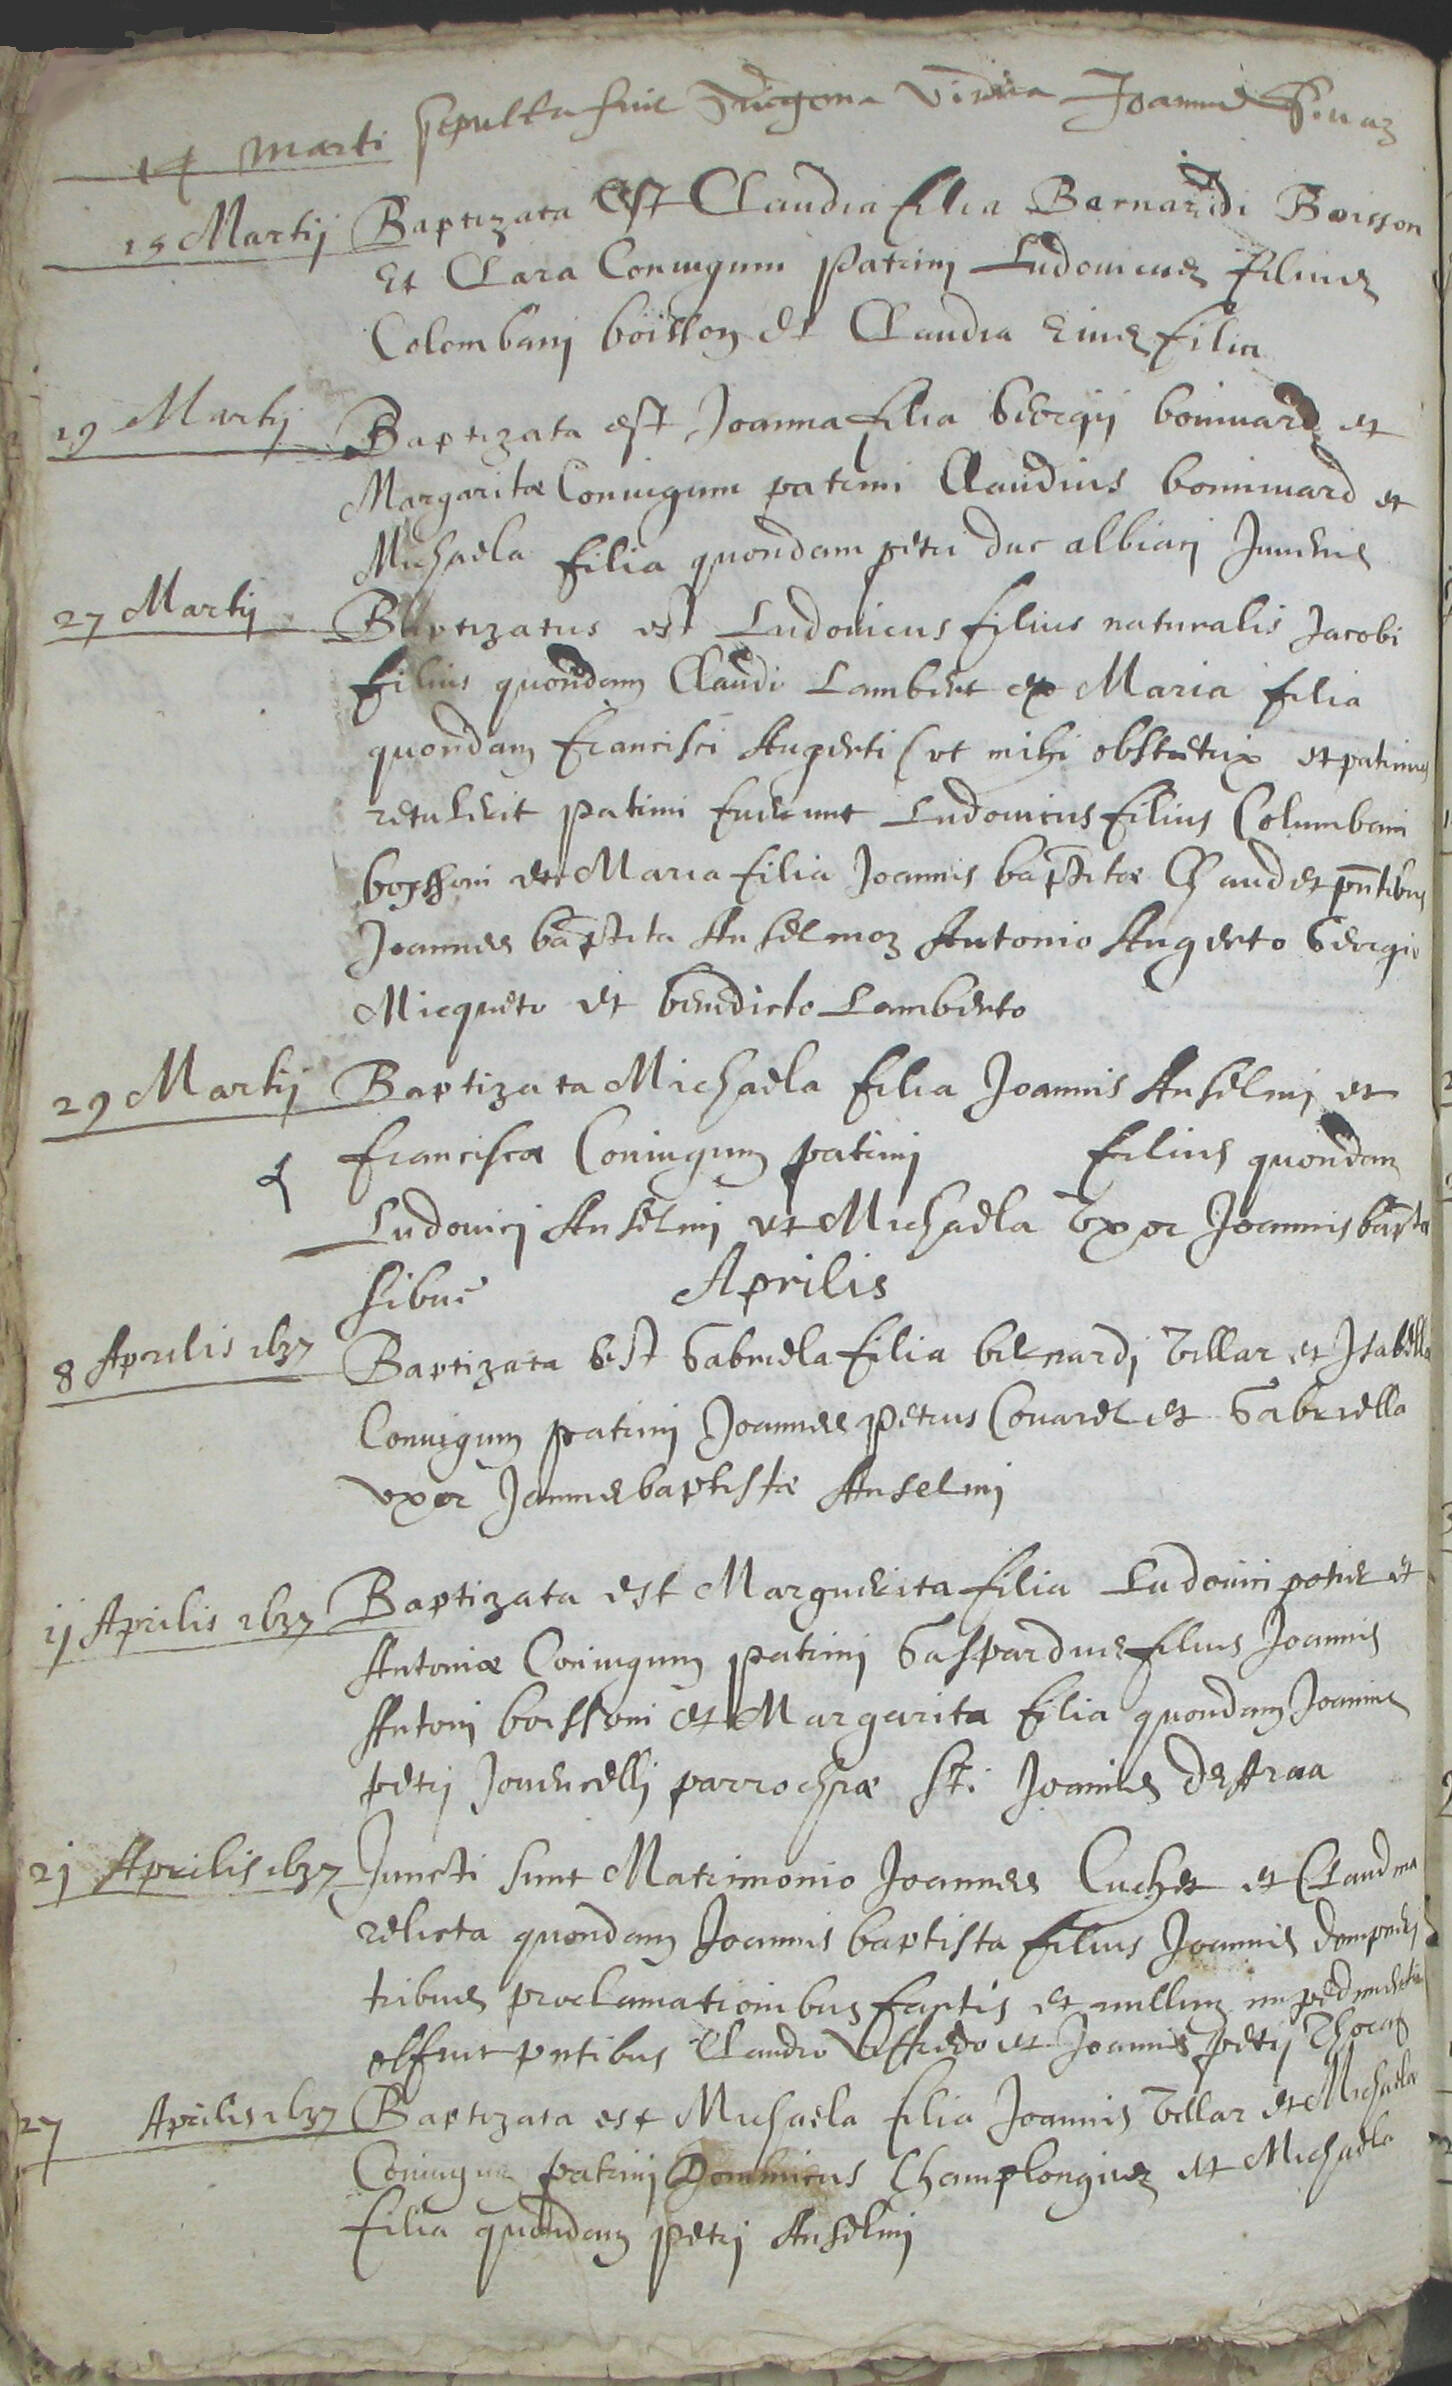 14 Marti sepulta fuit vidua Joannis
15 Martij Baptizata Est Claudia filia Bernardi Boisson
Et Clara Coniugum patrini Ludouicus filius
Colombani boisson et Claudia Eius filia
19 Martij Baptizata est Joanna filia Georgij boniuard et
Margaritæ Coniugum patrini Claudius boniuard et
Michaela filia quondam petri duc albiani Junenis
27 Martij Baptizatus est Ludouicus filius naturalis Jacobi
filius quondam Claudi Lambert ex Maria filia
quondam Francisci Augerti (ut mihi obstetrix et patrinus
retulerit patrini fuerunt Ludouicus filius Columbani
boessoni et Maria filia Joannis bap̄titæ et pñtibus
Joannes bap̄tita Anselmoz Antonio Augerto Georgio
Micqueto et benedicto Lamberto
29 Martij Baptizata Michaela filia Joannis Anselmi et
Franciscæ Coniugum patrini filius quondam
Ludouici Anselmi et Michaela Vxor Joannis bap̄ta
sibue
Aprilis
8 Aprilis 1637 Baptizata Est Gabriela filia bernardi Vellar et Isabella
Coniugum patrini Joannes petrus Couarel et Gabriella
vxor Joannes baptistæ Anselmi
11 Aprilis 1637 Baptizata est Marguerita filia Ludouici potier et
Antoniæ Coniugum patrini Gaspardus filius Joannis
Antonij boessoni et Margarita filia quondam Joannis
petri Jouencelli parrochiæ Sti Joannis De Araa
21 Aprilis 1637 Juncti sunt Matrimonio Joannes Cuchet et Claudina
relicta quondam Joannis baptista filius Joannis
tribus proclamationibus factis et nullum impedimentum
obfuit pntibus Claudio et Joannis petri
27 Aprilis 1637 Baptizata est Michaela filia Joannis Vellar et Michaela
Coniugum patrini Dominicus Champlongiuz et Michaela
filia quondam petri Anselmi